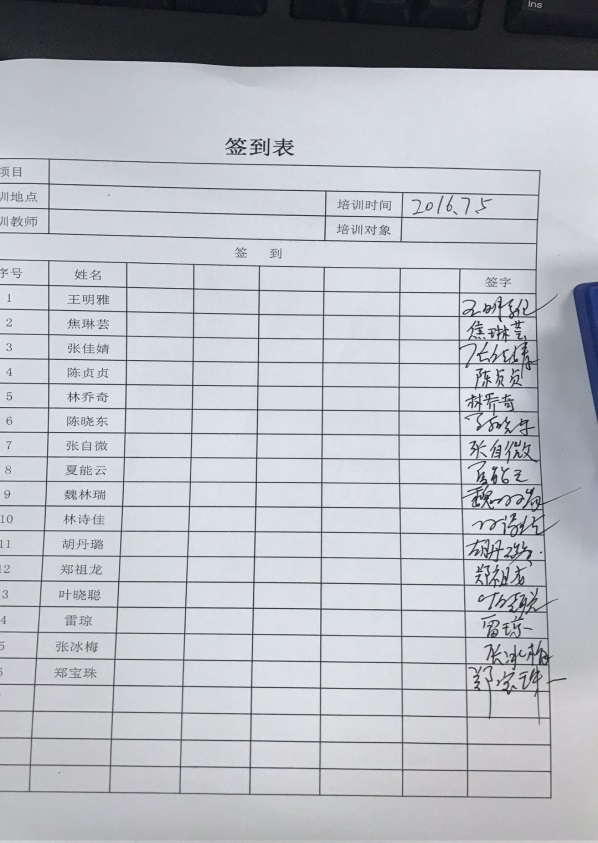 Ins
签到表
项目
训地点 培训时间 2016.7.5
训教师 培训对象
签 到
序号 姓名 签字
1 王明雅 王明雅
2 焦琳芸 焦琳芸
3 张佳婧 张佳婧
4 陈贞贞 陈贞贞
5 林乔奇 林乔奇
6 陈晓东
7 张自微 张自微
8 夏能云 夏能云
9 魏林瑞 魏林瑞
10 林诗佳 林诗佳
11 胡丹璐 胡丹璐
12 郑祖龙 郑祖龙
3 叶晓聪
4 雷琼 雷琼
5 张冰梅 张冰梅
6 郑宝珠 郑宝珠